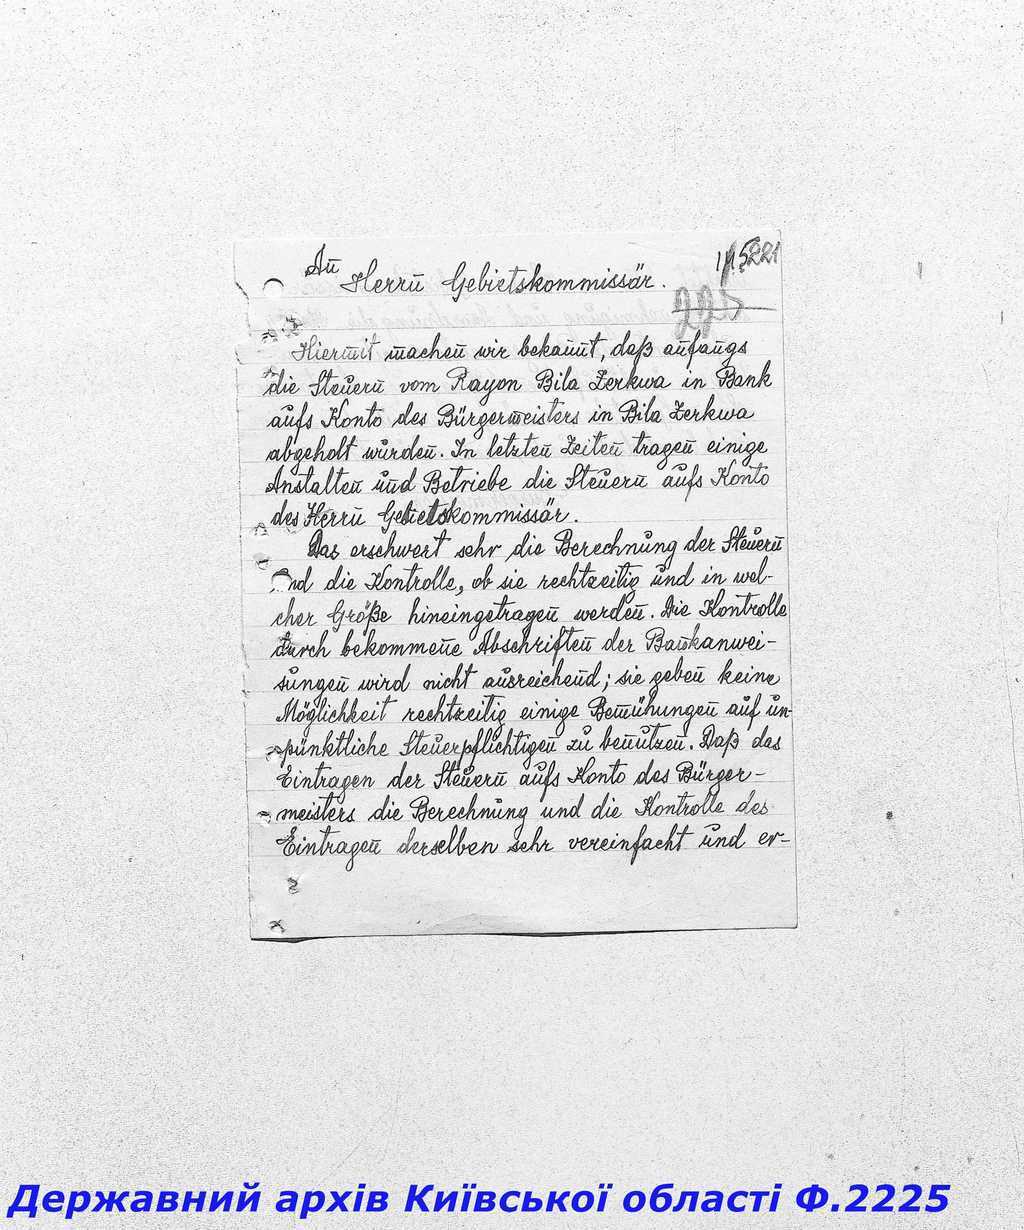 An
Herrn Gebietskommissär.
225
Hiermit machen wir bekannt, daß anfangs
die Steuern vom Rayon Bila Zerkwa in Bank
aufs Konto des Bürgermeisters in Bila Zerkwa
abgeholt wurden. In letzten Zeiten tragen einige
Anstalten und Betriebe die Steuern aufs Konto
des Herrn Gebietskommissär.
Das erschwert sehr die Berechnung der Steuern
und die Kontrolle, ob sie rechtzeitig und in wel-
cher Größe hineingetragen werden. Die Kontrolle
durch bekommene Abschriften der Bankanwei-
sungen wird nicht ausreichend; sie geben keine
Möglichkeit rechtzeitig einige Bemühungen auf un-
pünktliche Steuerpflichtigen zu benutzen. Daß das
Eintragen der Steuern aufs Konto des Bürger-
meisters die Berechnung und die Kontrolle des
Eintragen derselben sehr vereinfacht und er-
Державний архів Київської області Ф.2225